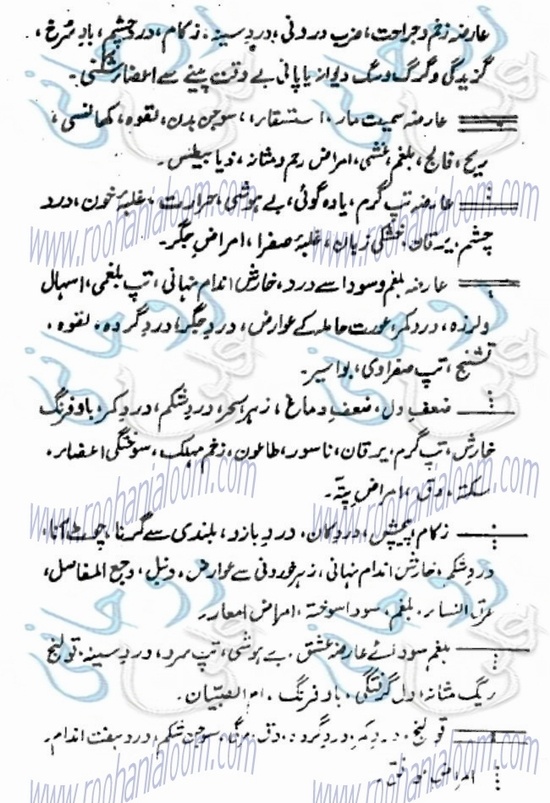 عارضہ زخم و جراحت، ضرب درونی، درد سینہ، زکام، درد چشم، باد سرخ،
گزیدگی و گرگ و سگ دیوانہ یا پانی بے وقت پینے سے اعضا شکنی۔
عارضہ سمیت مار، استسقاء، سوجن بدن، لقوہ، کھانسی،
ریح، فالج، بلغم، غشی، امراض رحم و مثانہ، ذیابیطس۔
عارضہ تپ گرم، یاوہ گوئی، بے ہوشی، حرارت، غلبۂ خون، درد
چشم، یرقان، خشکی زبان، غلبۂ صفرا، امراض جگر۔
عارضہ بلغم و سودا سے درد، خارش اندام نہانی، تپ بلغمی، اسہال
و لرزہ، درد کمر، عورت حاملہ کے عوارض، درد جگر، درد گردہ، لقوہ،
تشنج، تپ صفراوی، بواسیر۔
ضعف دل، ضعف دماغ، زہر سحر، درد شکم، درد کمر، باد فرنگ
خارش، تپ گرم، یرقان، ناسور، طاعون، زخم مہلک، سوختگی اعضاء،
سکتہ، دق، امراض پتہ۔
زکام، پیچش، درد کان، درد بازو، بلندی سے گرنا، چوٹ آنا،
درد شکم، خارش اندام نہانی، زہر خورونی سے عوارض، دنبل، وجع المفاصل،
عرق النساء، بلغم، سودا سوختہ، امراض امعاء۔
بلغم سودائے عارضہ عشق، بے ہوشی، تپ سرد، درد سینہ، قولنج
ریگ مثانہ، دل گرفتگی، باد فرنگ، ام الصبیان۔
قولنج، درد گردہ، دق، سوجن شکم، درد ہفت اندام۔
امراض
www.roohanialoom.com
www.roohanialoom.com
www.roohanialoom.com
www.roohanialoom.com
www.roohanialoom.com
www.roohanialoom.com
www.roohanialoom.com
www.roohanialoom.com